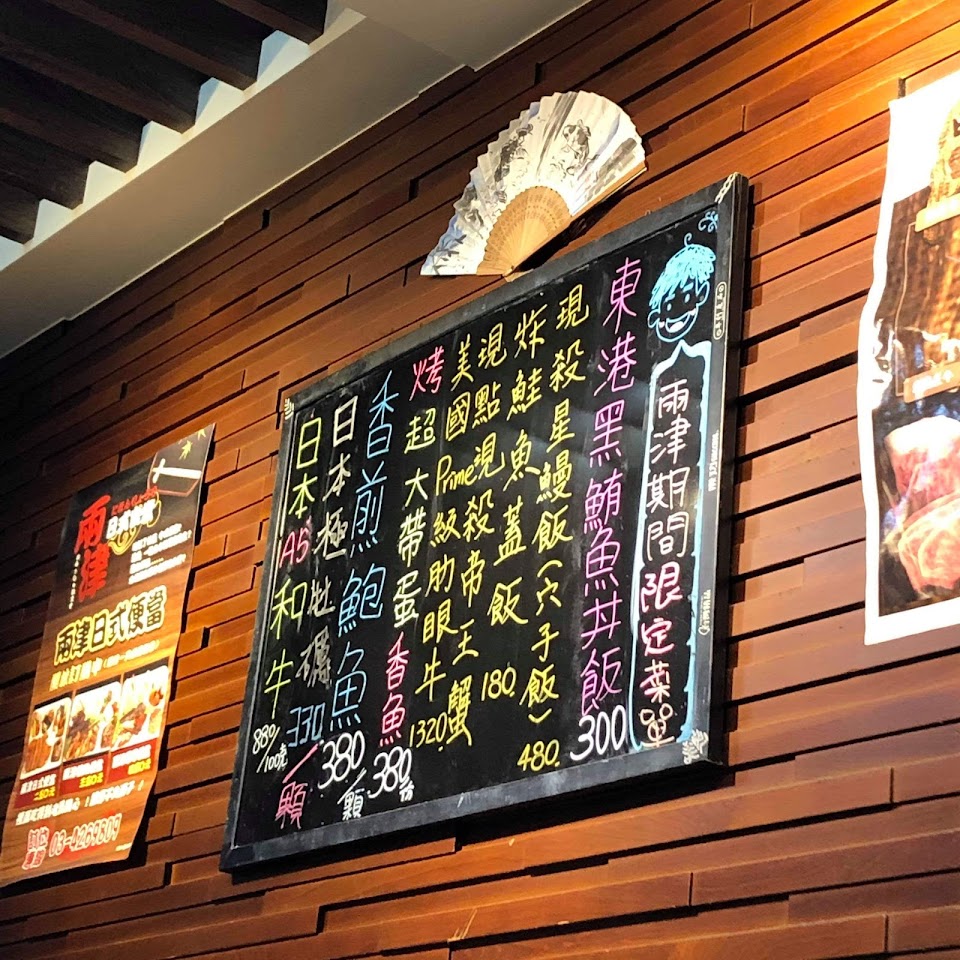 兩津期間限定菜單
東港黑鮪魚丼飯 300
現殺星鰻飯(穴子飯) 480
炸鮭魚蓋飯 180
現點現殺帝王蟹
美國Prime級肋眼牛 1320
烤超大帶蛋香魚 380
香煎鮑魚 380/顆
日本極牡蠣 330/顆
日本A5和牛 880/100克
兩津
兩津日式便當
03-4269809